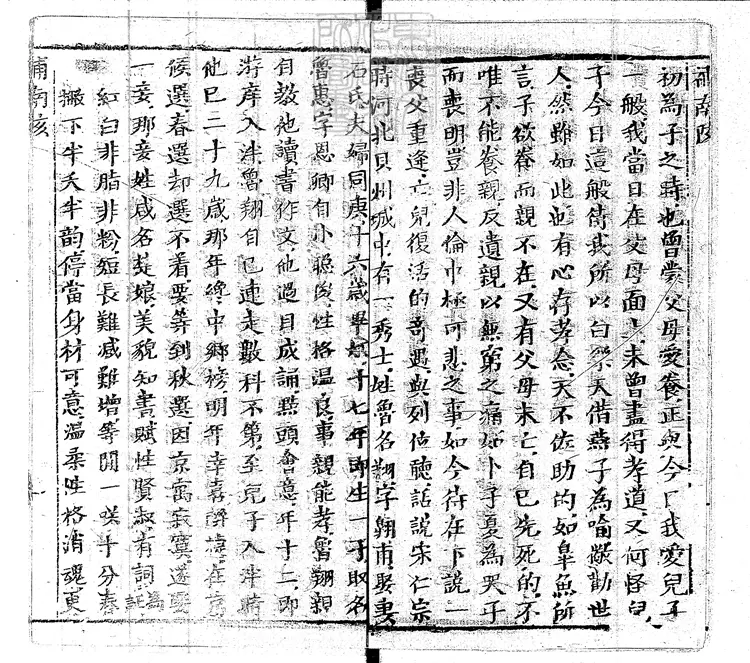 補南陔
初為子之時也曾蒙父母愛養正與今日我愛兒子
一般我當日在父母面上未曾盡得孝道又何怪兒
子今日這般待我所以白樂天借燕子為喻儆勸世
人然雖如此也有心存孝念天不佐助的如皐魚所
言子欲養而親不在又有父母未亡自己先死的不
唯不能養親反遺親以無窮之痛如卜子夏為哭子
而喪明豈非人倫中極可悲之事如今待在下說一
喪父重逢亡兒復活的奇遇與列位聽話說宋仁宗
時河北貝州城中有一秀士姓魯名翔字翱甫娶妻
石氏夫婦同庚十六歲畢姻十七年即生一子取名
魯惠字恩卿自小聰俊性格温良事親能孝魯翔親
自教他讀書作文他過目成誦點頭會意年十二即
游庠入泮魯翔自己連走數科不第至兒子入泮時
他已二十九歲那年纔中鄉榜明年幸喜聯捷在京
候選春選却選不着要等到秋選因京寓寂寞遂娶
一妾那妾姓咸名楚娘美貌知書賦性賢淑有詞為証
紅白非脂非粉短長難減難增等閒一笑十分春
撇下半天半韵停當身材可意温柔性格消魂更
補南陔